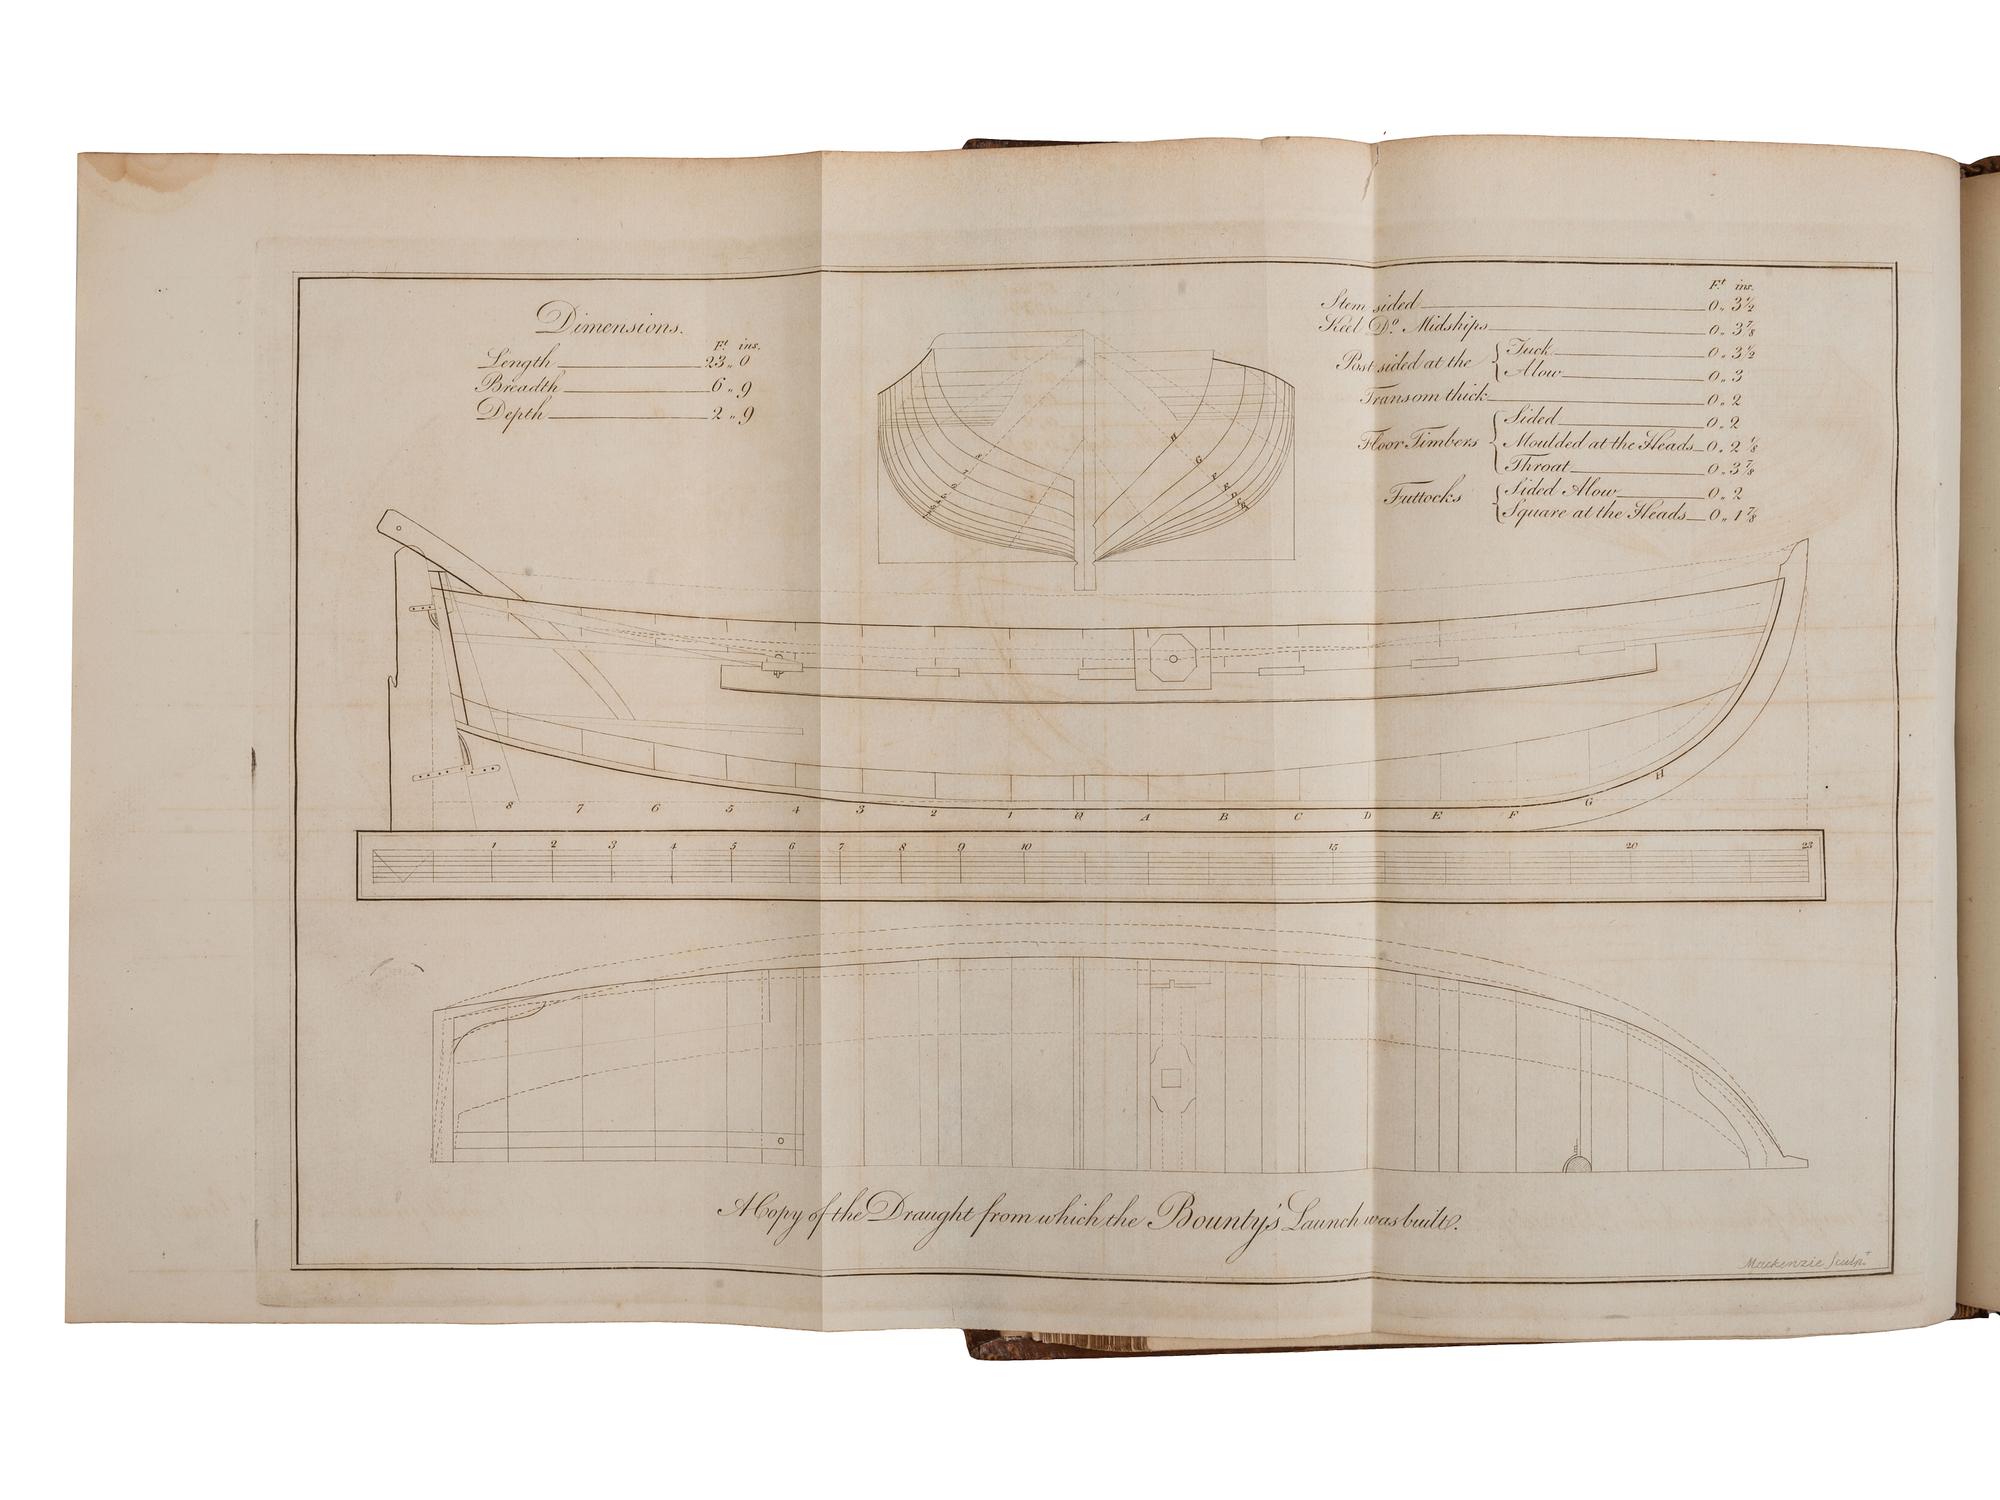 Dimensions.
Ft. ins.
Length 23 „ 0
Breadth 6 „ 9
Depth 2 „ 9
Ft. ins.
Stem sided 0 „ 3½
Keel Do. Midships 0 „ 3⅞
Post sided at the { Tuck 0 „ 3½
Alow 0 „ 3
Transom thick 0 „ 2
Floor Timbers { Sided 0 „ 2
Moulded at the Heads 0 „ 2⅛
Throat 0 „ 3⅞
Futtocks { Sided Alow 0 „ 2
Square at the Heads 0 „ 1⅞
H
G
8 7 6 5 4 3 2 1 A B C D E F G H
1 2 3 4 5 6 7 8 9 10 15 20 23
A Copy of the Draught from which the Bounty's Launch was built.
Mackenzie Sculpt.